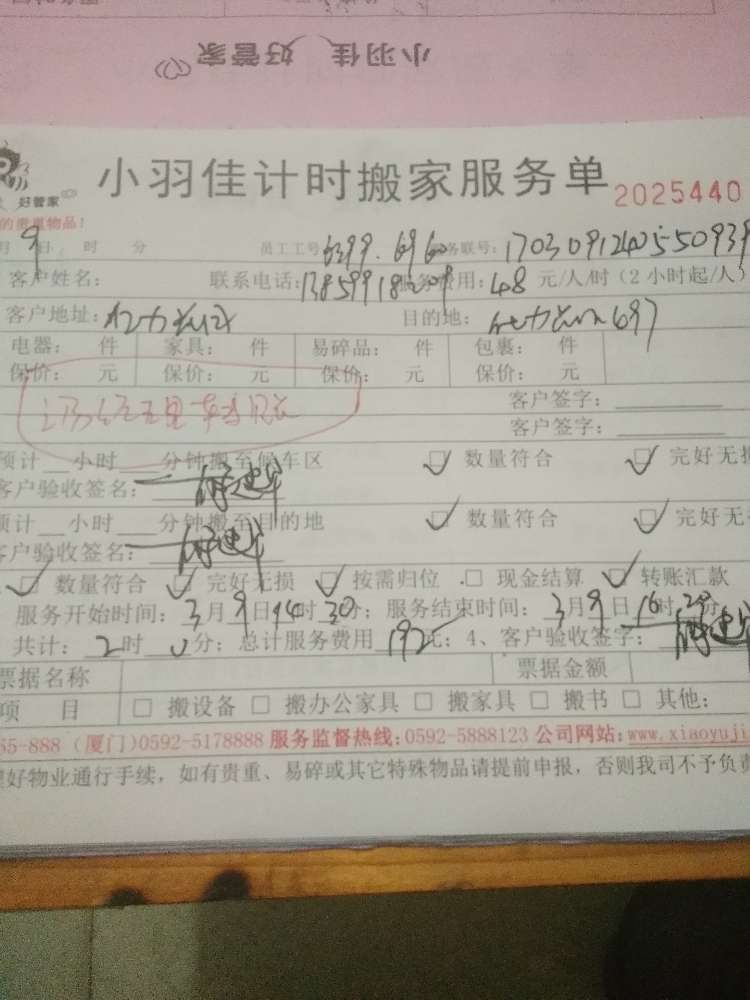 小羽佳 好管家
小羽佳计时搬家服务单 2025440
好管家
的贵重物品：
月9日，时 分 员工工号 6399.6960 务联号：17030912405550939
客户姓名： 联系电话：服务费用：48 元/人/时（2小时起/人）
客户地址： 目的地：697
电器： 件 家具： 件 易碎品： 件 包裹： 件
保价： 元 保价： 元 保价： 元 保价： 元
客户签字：
客户签字：
预计 小时 分钟搬至候车区 数量符合 完好无损
客户验收签名：
预计 小时 分钟搬至目的地 数量符合 完好无
客户验收签名：
数量符合 完好无损 按需归位 现金结算 转账汇款
服务开始时间：3月9日14时30分；服务结束时间：3月9日16时30分
共计：2时0分；总计服务费用192元；4、客户验收签字：
票据名称 票据金额
项 目 搬设备 搬办公家具 搬家具 搬书 其他：
65-888（厦门）0592-5178888 服务监督热线：0592-5888123 公司网站：www.xiaoyuji
好物业通行手续，如有贵重、易碎或其它特殊物品请提前申报，否则我司不予负责